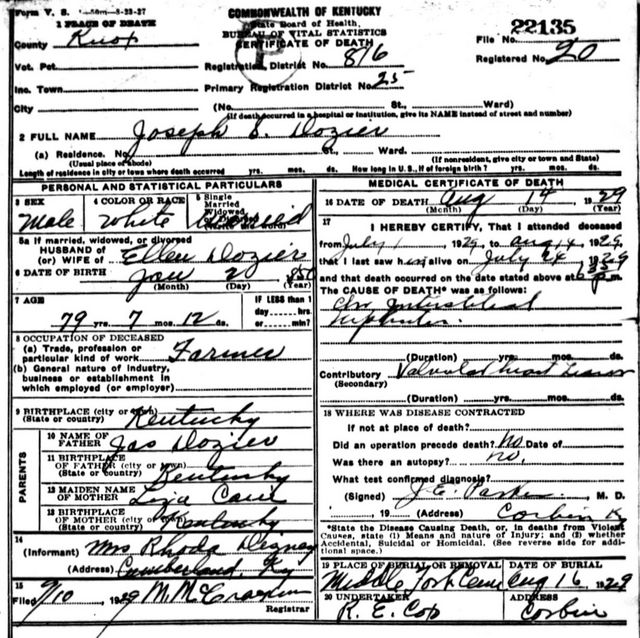 Form V. S. 8-23-27
COMMONWEALTH OF KENTUCKY
State Board of Health,
BUREAU OF VITAL STATISTICS
CERTIFICATE OF DEATH
22135
File No.
Registered No. 20
1 PLACE OF DEATH
County Knox
Vot. Pct. Registration District No. 876
Inc. Town Primary Registration District No. 25
City (No. St., Ward)
(If death occurred in a hospital or institution, give its NAME instead of street and number)
2 FULL NAME Joseph S. Dozier
(a) Residence. No. St., Ward.
(Usual place of abode) (If nonresident, give city or town and State)
Length of residence in city or town where death occurred yrs. mos. ds. How long in U. S., if of foreign birth? yrs. mos. ds.
PERSONAL AND STATISTICAL PARTICULARS
3 SEX 4 COLOR OR RACE 5 Single Married Widowed
Male White
5a If married, widowed, or divorced
HUSBAND OF
(or) WIFE OF Ellen Dozier
6 DATE OF BIRTH Jan 2 1850
(Month) (Day) (Year)
7 AGE IF LESS than 1
day, hrs.
or min?
79 yrs. 7 mos. 12 ds.
8 OCCUPATION OF DECEASED
(a) Trade, profession or
particular kind of work Farmer
(b) General nature of industry,
business or establishment in
which employed (or employer)
9 BIRTHPLACE (city or town)
(State or country) Kentucky
PARENTS
10 NAME OF
FATHER Jas Dozier
11 BIRTHPLACE
OF FATHER (city or town)
(State or country) Kentucky
12 MAIDEN NAME
OF MOTHER
13 BIRTHPLACE
OF MOTHER (city or town)
(State or country) Kentucky
14
(Informant) Mrs Rhoda
(Address) Cumberland, Ky
15
Filed 9/10 1929 M. McCracken
Registrar
MEDICAL CERTIFICATE OF DEATH
16 DATE OF DEATH Aug 14 1929
(Month) (Day) (Year)
17
I HEREBY CERTIFY, That I attended deceased
from July 1 1929 to Aug 14, 1929,
that I last saw him alive on July 24, 1929
and that death occurred on the date stated above at p.m.
The CAUSE OF DEATH* was as follows:
Chr Interstitial
Nephritis.
(Duration) yrs. mos. ds.
Contributory Valvular heart lesion
(Secondary)
(Duration) yrs. mos. ds.
18 WHERE WAS DISEASE CONTRACTED
If not at place of death?
Did an operation precede death? No. Date of
Was there an autopsy? no.
What test confirmed diagnosis?
(Signed) J. E. Parker M. D.
, 19 (Address) Corbin Ky
*State the Disease Causing Death, or, in deaths from Violent
Causes, state (1) Means and nature of Injury; and (2) whether
Accidental, Suicidal or Homicidal. (See reverse side for addi-
tional space.)
19 PLACE OF BURIAL OR REMOVAL DATE OF BURIAL
Middle Fork Cem Aug 16 1929
20 UNDERTAKER ADDRESS
R. E. Cop Corbin